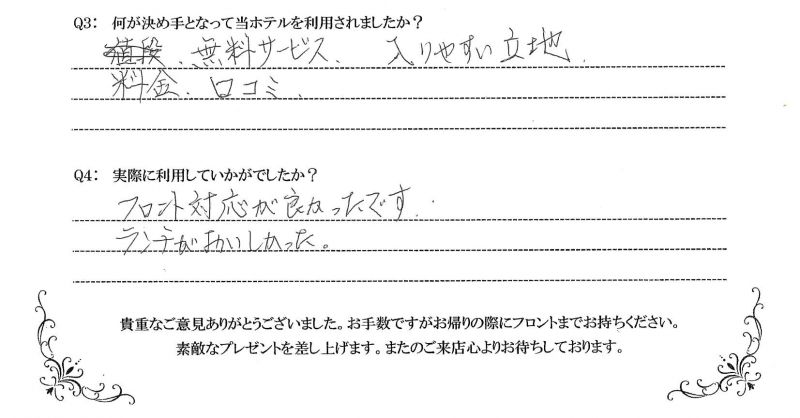 Q3: 何が決め手となって当ホテルを利用されましたか？
値段、無料サービス、 入りやすい立地、
料金、口コミ、
Q4: 実際に利用していかがでしたか？
フロント対応が良かったです。
ランチがおいしかった。
貴重なご意見ありがとうございました。お手数ですがお帰りの際にフロントまでお持ちください。
素敵なプレゼントを差し上げます。またのご来店心よりお待ちしております。